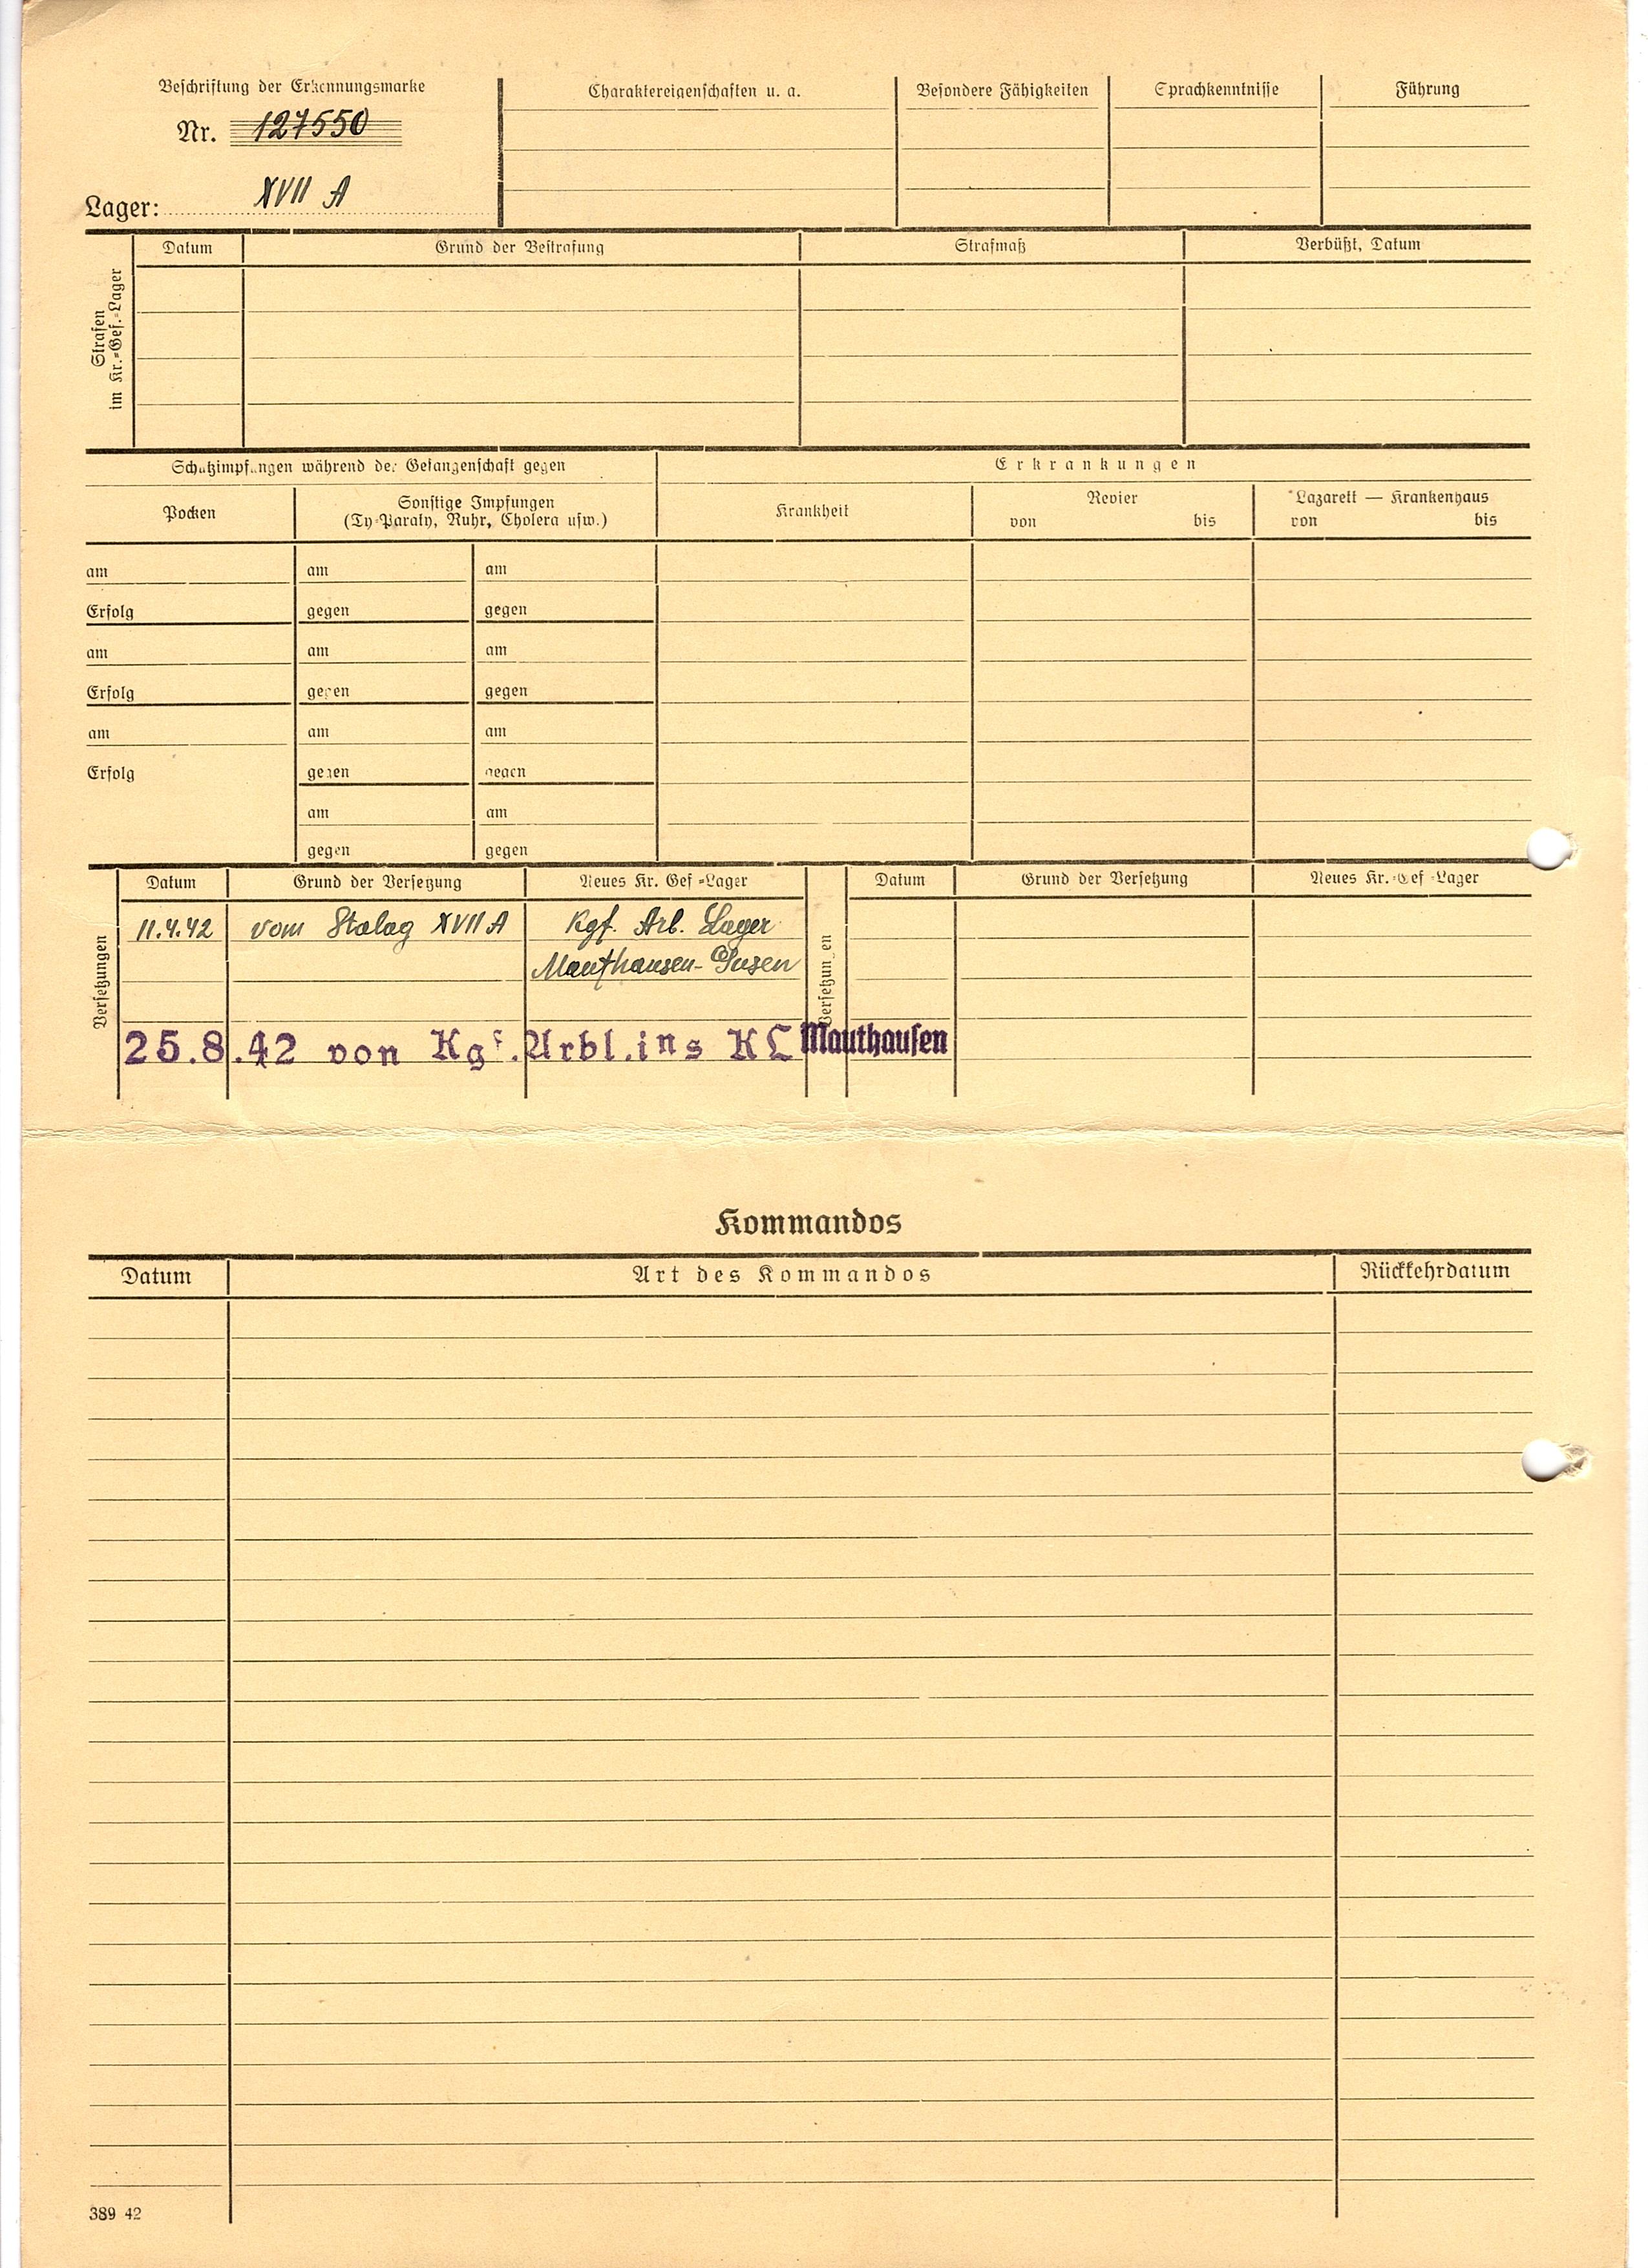 Beschriftung der Erkennungsmarke
Nr. 127550
Lager: XVII A
Charaktereigenschaften u. a.
Besondere Fähigkeiten
Sprachkenntnisse
Führung
Strafen
im Kr.-Gef.-Lager
Datum
Grund der Bestrafung
Strafmaß
Verbüßt, Datum
Schutzimpfungen während der Gefangenschaft gegen
Erkrankungen
Pocken
Sonstige Impfungen
(Ty-Paraty, Ruhr, Cholera usw.)
Krankheit
Revier
von bis
Lazarett — Krankenhaus
von bis
am am am
Erfolg gegen gegen
am am am
Erfolg gegen gegen
am am am
Erfolg gegen gegen
am am
gegen gegen
Versetzungen
Datum Grund der Versetzung Neues Kr. Gef-Lager
11.4.42 vom Stalag XVII A Kgf. Arb. Lager
Mauthausen-Gusen
25.8.42 von Kgf.Arbl.ins KL Mauthausen
Versetzungen
Datum Grund der Versetzung Neues Kr.-Gef-Lager
Kommandos
Datum Art des Kommandos Rückkehrdatum
389 42